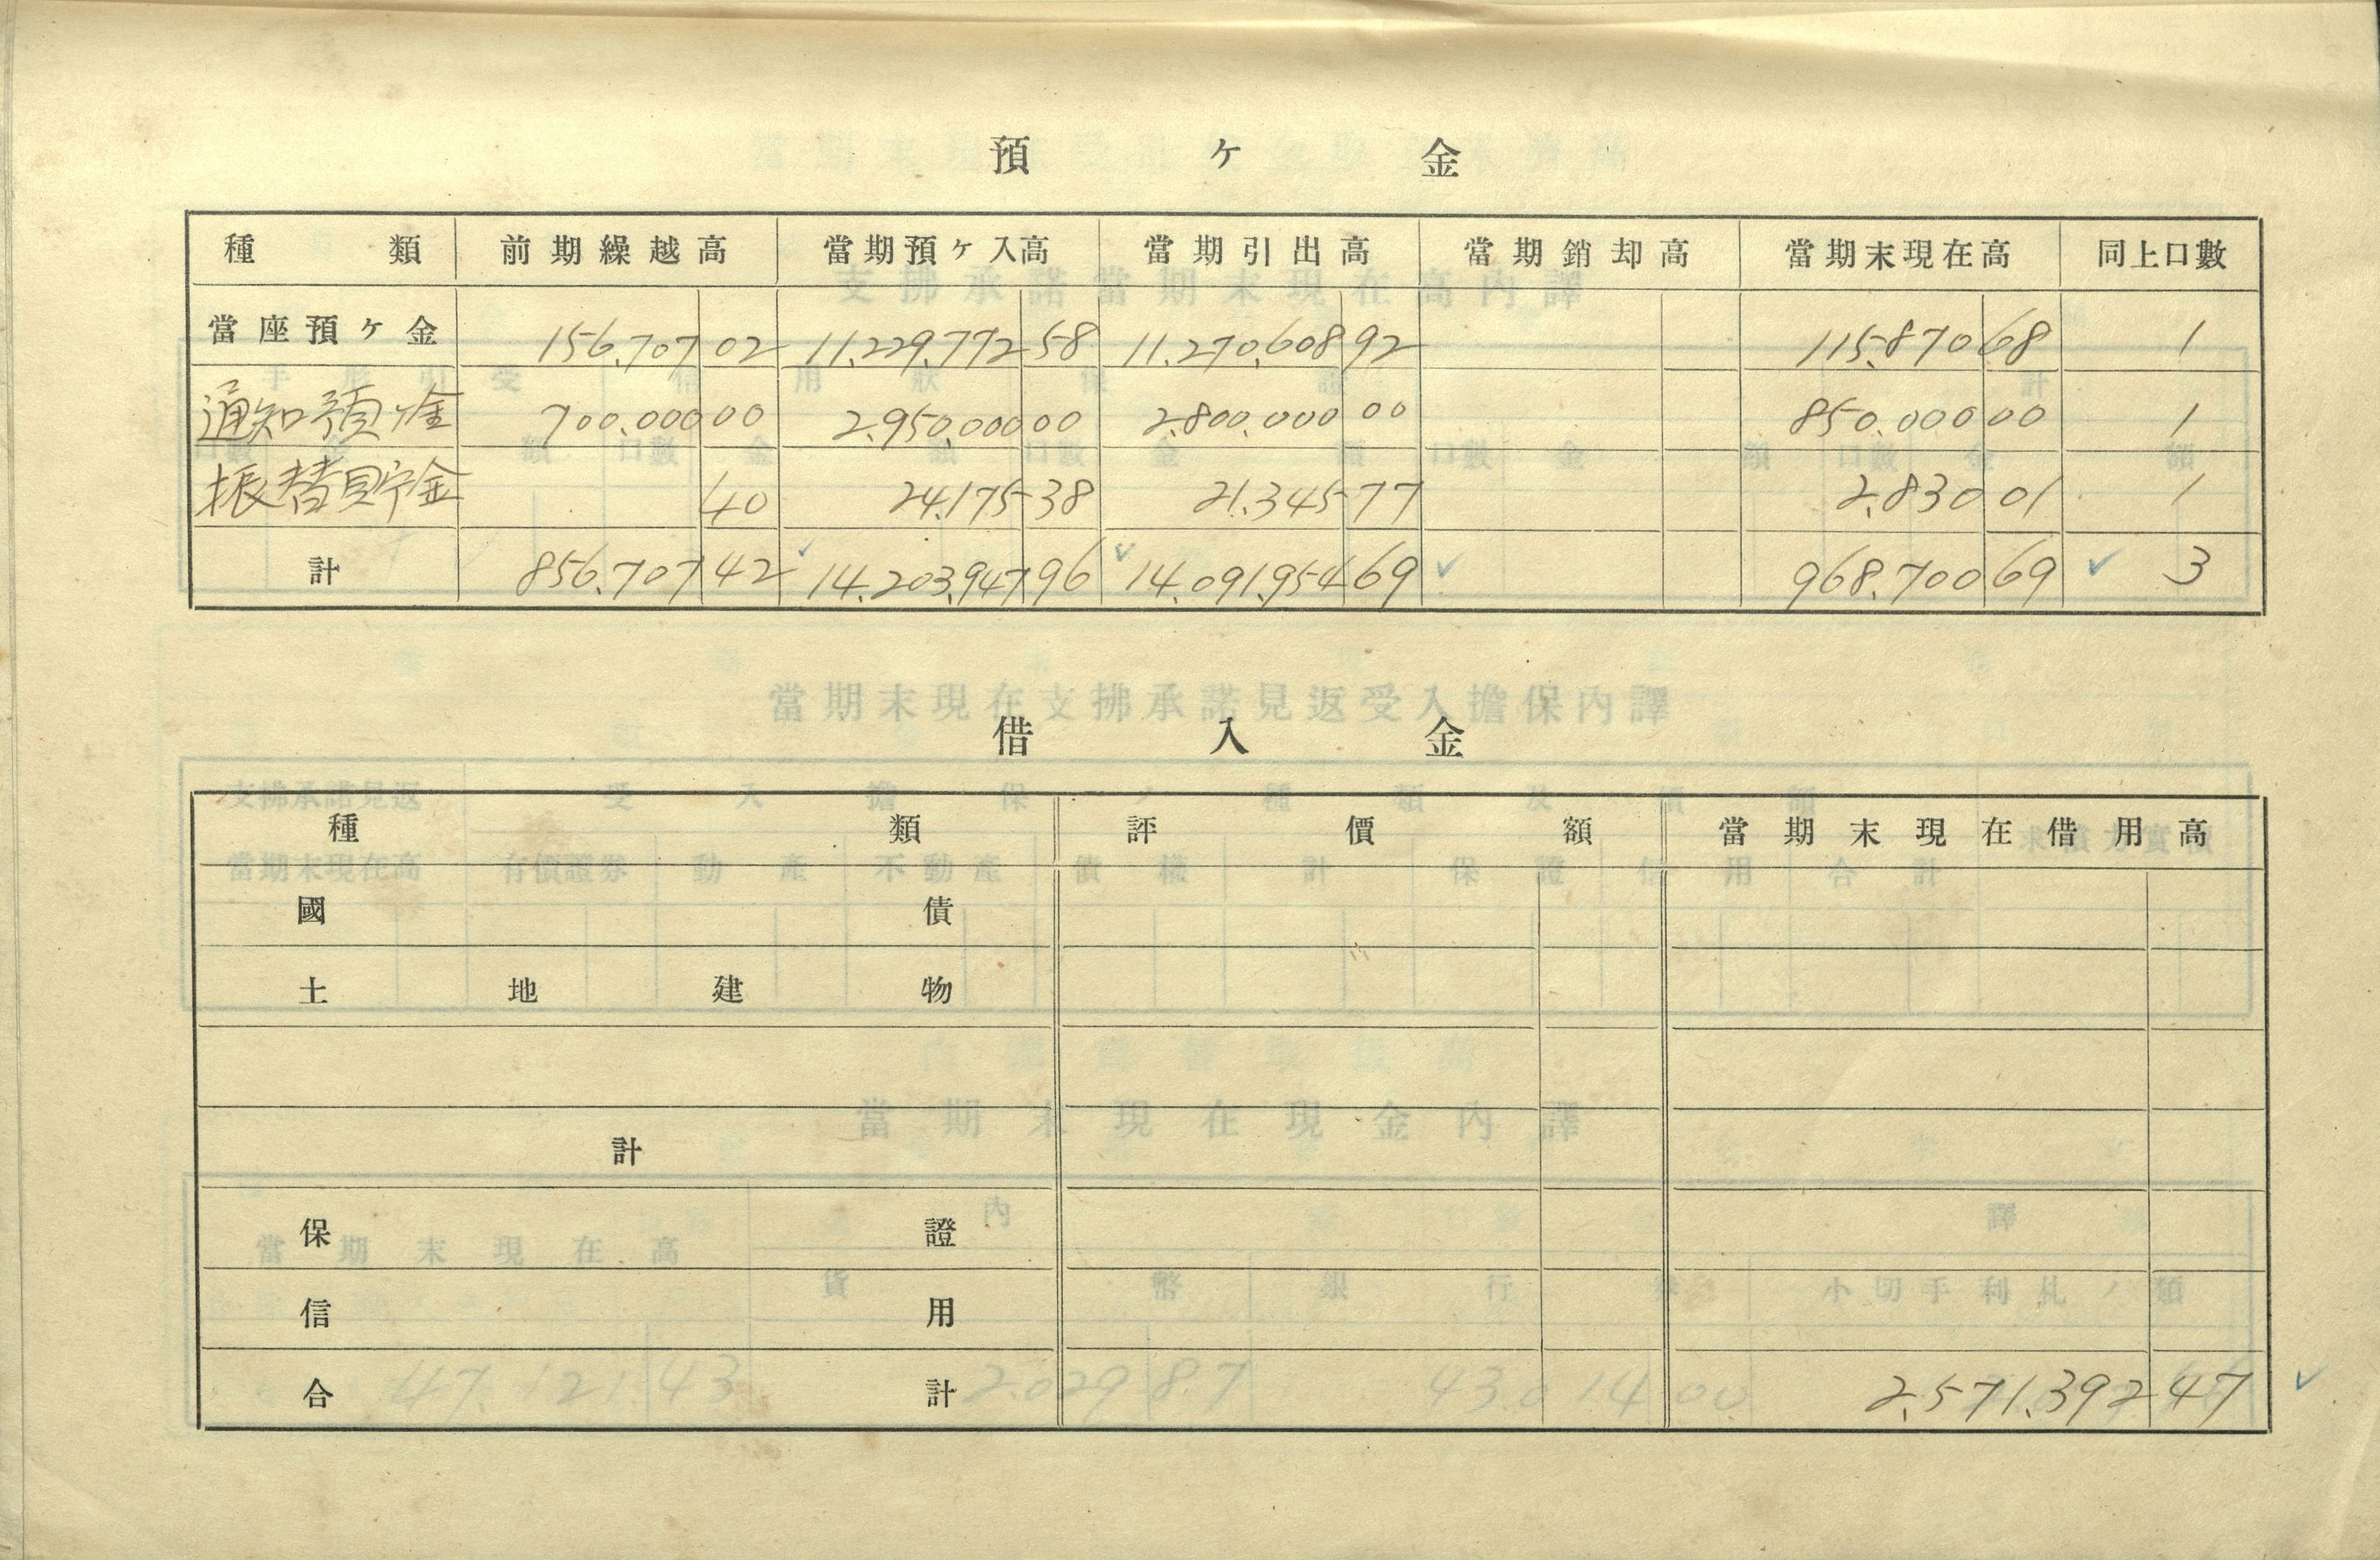 預ヶ金
種類 前期繰越高 當期預ヶ入高 當期引出高 當期銷却高 當期末現在高 同上口數
當座預ヶ金 156.707 02 11.229.772 58 11.270.608 92 115.870 68 1
通知預ヶ金 700.000 00 2.950.000 00 2.800.000 00 850.000 00 1
振替貯金 40 24.175 38 21.345 77 2.830 01 1
計 856.707 42 14.203.947 96 14.091.954 69 968.700 69 3
借入金
種類 評價額 當期末現在借用高
國債
土地建物
計
保證
信用
合計 2.571.392 47